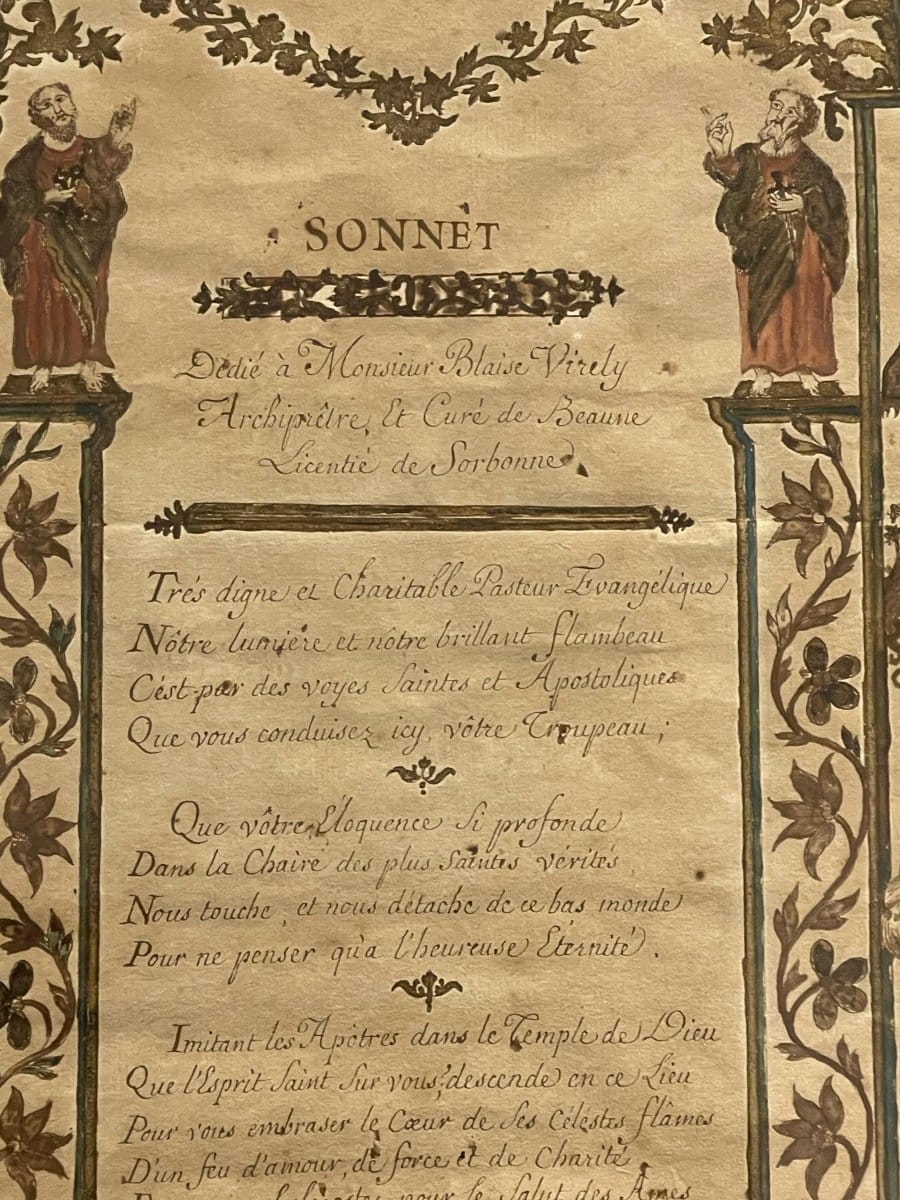 SONNET
Dédié à Monsieur Blaise Virely
Archiprêtre, Et Curé de Beaune
Licentié de Sorbonne
Trés digne et Charitable Pasteur Evangélique
Nôtre lumiére et nôtre brillant flambeau
C'ést par des voyes Saintes et Apostoliques
Que vous conduisez icy, vôtre Troupeau ;
Que vôtre Éloquence Si profonde
Dans la Chaire des plus Saintes vérités
Nous touche, et nous détache de ce bas monde
Pour ne penser qu'a l'heureuse Éternité.
Imitant les Apôtres dans le Temple de Dieu
Que l'Esprit Saint Sur vous, descende en ce Lieu
Pour vous embraser le Cœur de Ses Célestes flâmes
D'un feu d'amour, de force et de Charité
pour le Salut des Ames